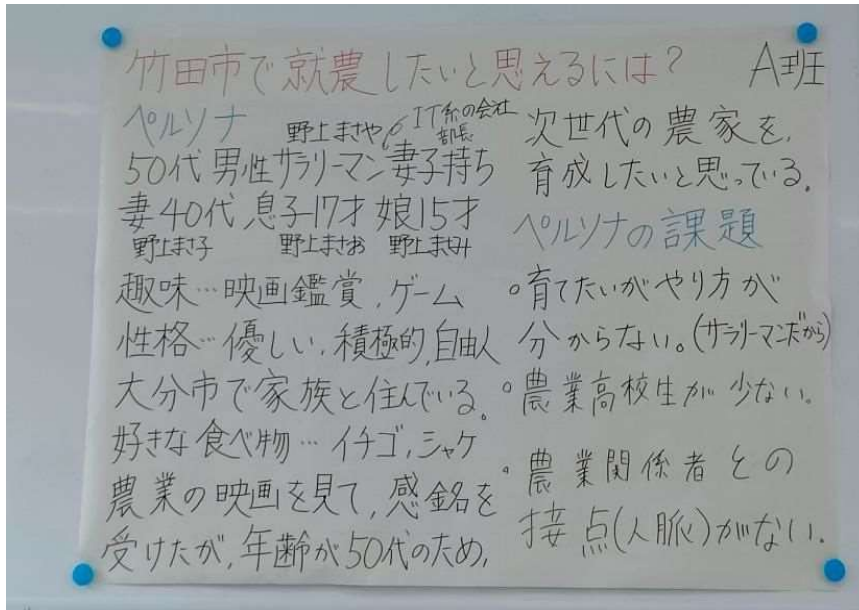 竹田市で就農したいと思えるには?
A班
ペルソナ
野上まさや
IT系の会社
部長
50代男性サラリーマン妻子持ち
妻40代 息子17才 娘15才
野上まさ子 野上まさお 野上まさみ
趣味…映画鑑賞,ゲーム
性格…優しい,積極的,自由人
大分市で家族と住んでいる。
好きな食べ物…イチゴ,シャケ
農業の映画を見て,感銘を
受けたが,年齢が50代のため,
次世代の農家を,
育成したいと思っている。
ペルソナの課題
○育てたいがやり方が
分からない。(サラリーマンだから)
○農業高校生が少ない。
○農業関係者との
接点(人脈)がない。